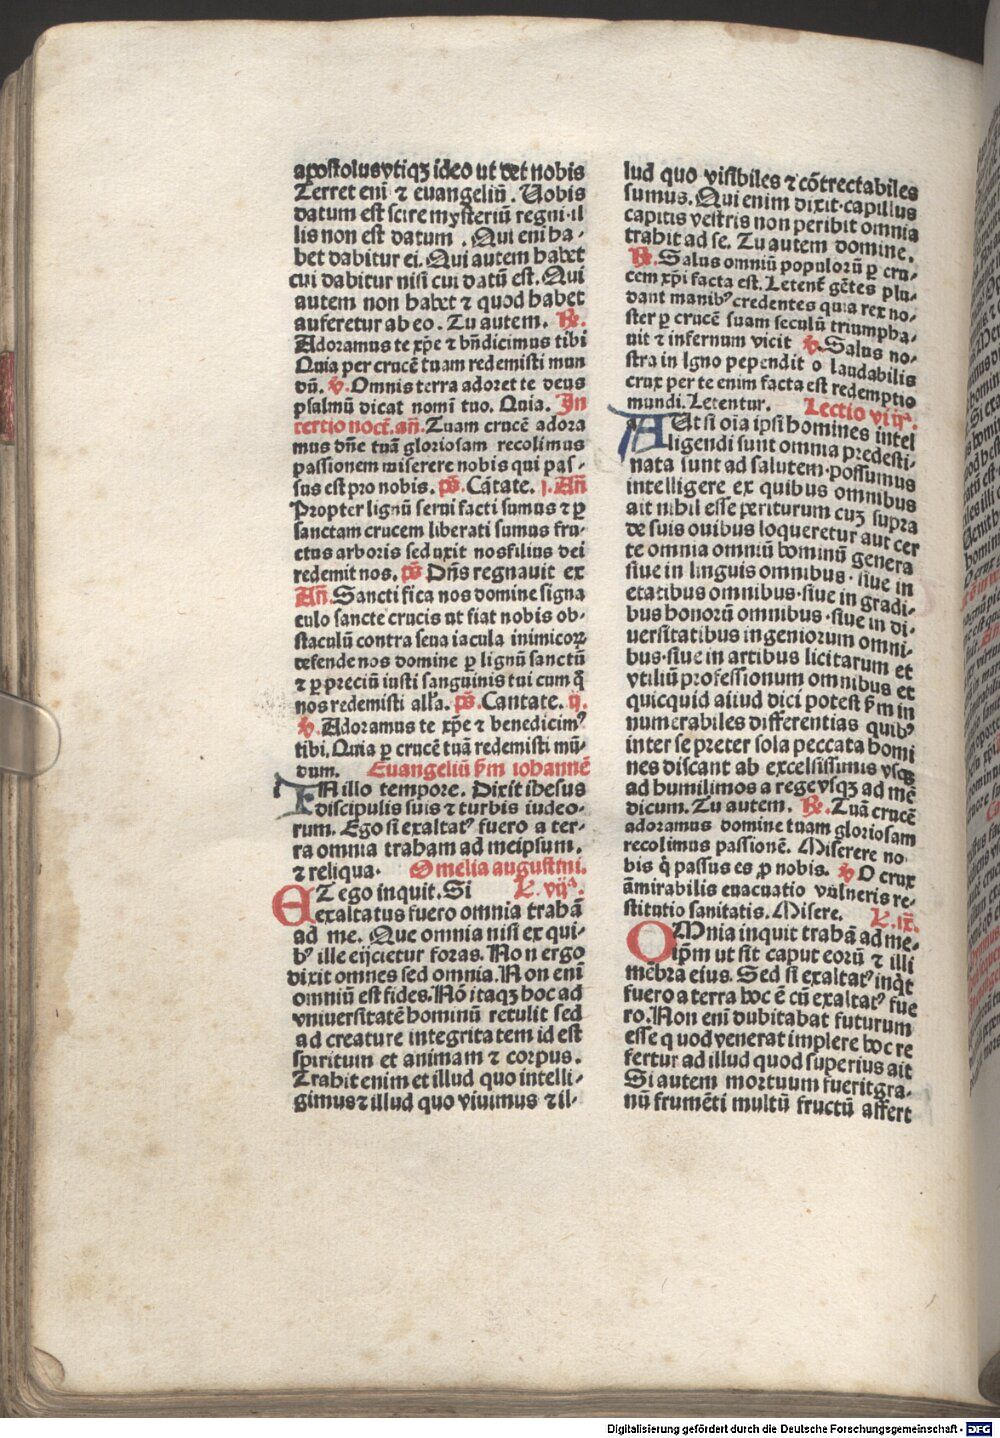 apostolus vtiqꝫ ideo ut det nobis
Terret eni̅ ⁊ euangeliu̅ . Uobis
datum est scire mysteriu̅ regni·il
lis non est datum . Qui eni ha-
bet dabitur ei. Qui autem habet
cui dabitur nisi cui datu̅ est. Qui
autem non habet ⁊ quod habet
auferetur ab eo. Tu autem. ℟.
Adoramus te xp̅e ⁊ bn̅dicimus tibi
Quia per cruce̅ tuam redemisti mun
du̅. ℣. Omnis terra adoret te deus
psalmu̅ dicat nomi̅ tuo. Quia. In
tertio noct̅. an̅. Tuam cruce̅ adora
mus dn̅e tua̅ gloriosam recolimus
passionem miserere nobis qui pas-
sus est pro nobis. ps̅. Ca̅tate. j. An̅
Propter lignu̅ serui facti sumus ⁊ ꝑ
sanctam crucem liberati sumus fru-
ctus arboris seduxit nos filius dei
redemit nos. ps̅ Dn̅s regnauit ex
An̅. Sanctifica nos domine signa
culo sancte crucis ut fiat nobis ob-
staculu̅ contra seua iacula inimicoꝝ
defende nos domine ꝑ lignu̅ sanctu̅
⁊ ꝑ preciu̅ iusti sanguinis tui cum q̅
nos redemisti all'a. ps̅. Cantate. ij.
℣. Adoramus te xp̅e ⁊ benedicimꝰ
tibi. Quia ꝑ cruce̅ tua̅ redemisti mu̅-
dum. Euangeliu̅ s̅m iohanne̅
IN illo tempore. Dixit ihesus
discipulis suis ⁊ turbis iudeo-
rum. Ego si exaltatꝰ fuero a ter-
ra omnia traham ad meipsum.
⁊ reliqua. Omelia augustini.
ET ego inquit. Si L. vijª.
exaltatus fuero omnia traha̅
ad me. Que omnia nisi ex qui-
bꝰ ille eijcietur foras. Non ergo
dixit omnes sed omnia. Non eni̅
omniu̅ est fides. No̅ itaqꝫ hoc ad
vniuersitate̅ hominu̅ retulit sed
ad creature integritatem id est
spiritum et animam ⁊ corpus.
Trahit enim et illud quo intelli-
gimus ⁊ illud quo viuimus ⁊ il-
lud quo visibiles ⁊ co̅trectabiles
sumus. Qui enim dixit·capillus
capitis vestris non peribit omnia
trahit ad se. Tu autem domine.
℟. Salus omniu̅ populoru̅ ꝑ cru-
cem xp̅i facta est. Letent̅ ge̅tes plu-
dant manibꝰ credentes quia rex no-
ster ꝑ cruce̅ suam seculu̅ triumpha-
uit ⁊ infernum vicit ℣. Salus no-
stra in lgno pependit o laudabilis
crux per te enim facta est redemptio
mundi. Letentur. Lectio viijª.
AUt si oi̅a ipsi homines intel
ligendi sunt omnia predesti-
nata sunt ad salutem·possumus
intelligere ex quibus omnibus
ait nihil esse periturum cuꝫ supra
de suis ouibus loqueretur aut cer
te omnia omniu̅ hominu̅ genera
siue in linguis omnibus·siue in
etatibus omnibus·siue in gradi-
bus honoru̅ omnibus·siue in di-
uersitatibus ingeniorum omni-
bus·siue in artibus licitarum et
vtiliu̅ professionum omnibus et
quicquid aiiud dici potest s̅m in
numerabiles differentias quibꝰ
inter se preter sola peccata homi
nes discant ab excelsissimis vsqꝫ
ad humilimos a rege vsqꝫ ad me̅
dicum. Tu autem. ℟. Tua̅ cruce̅
adoramus domine tuam gloriosam
recolimus passione̅. Miserere no
bis q̇ passus es ꝓ nobis. ℣ O crux
a̅mirabilis euacuatio vulneris re-
stitutio sanitatis. Misere. L. ix̅.
OMnia inquit traha̅ ad me-
ip̅m ut sit caput eoru̅ ⁊ illi
me̅bra eius. Sed si exaltatꝰ inq̇t
fuero a terra hoc e̅ cu̅ exaltatꝰ fue
ro. Non eni̅ dubitabat futurum
esse q uod venerat implere hoc re
fertur ad illud quod superius ait
Si autem mortuum fuerit gra-
nu̅ frume̅ti multu̅ fructu̅ affert
Digitalisierung gefördert durch die Deutsche Forschungsgemeinschaft - DFG